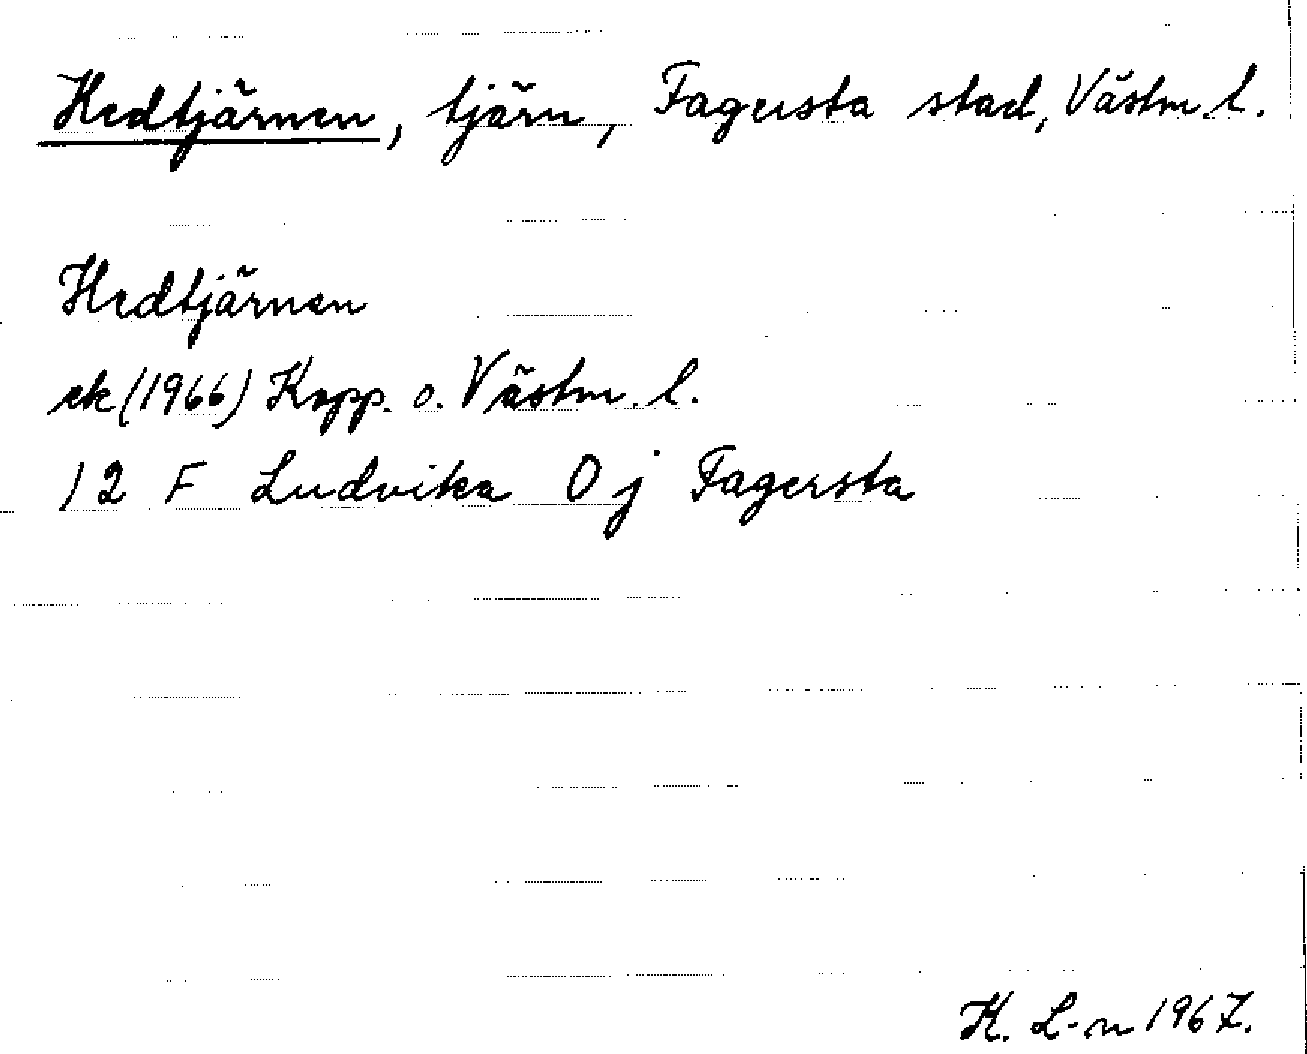 Hedtjärnen, tjärn, Fagersta stad, Västm. l.
Hedtjärnen
ek (1966) Kopp. o. Västm. l.
12 F Ludvika 0 j Fagersta
K. L-n 1967.